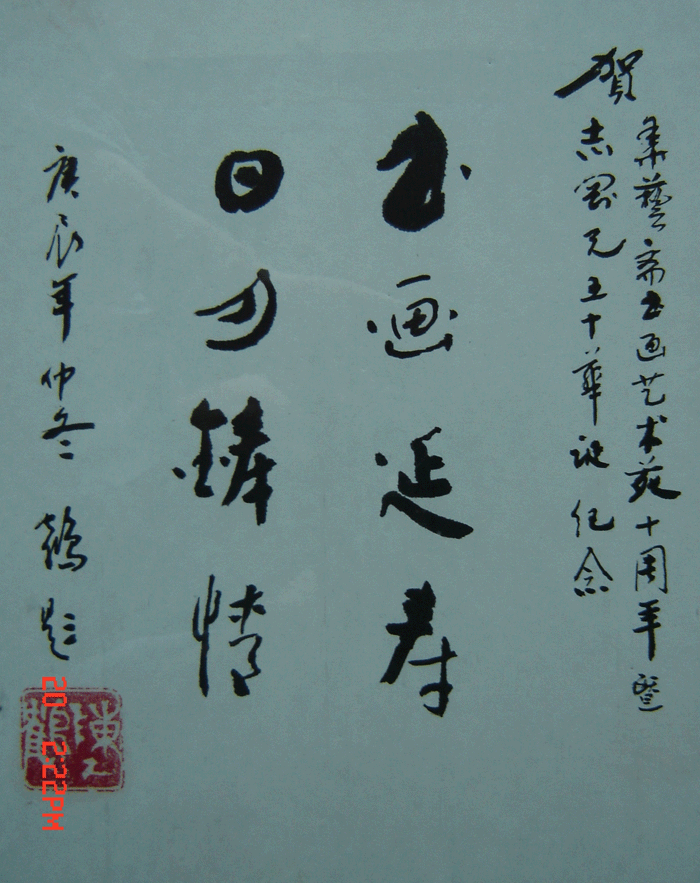 賀
集藝斋书画艺术苑十周年暨
志兄五十華诞纪念
书画延寿
日情
庚辰年仲冬
鹤题
陳鶴
20 2:22PM